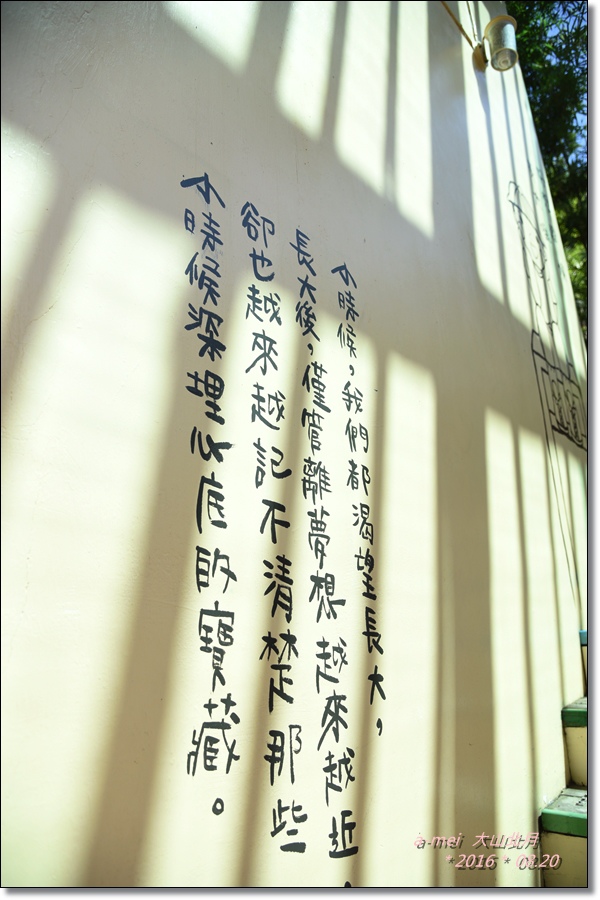 小時候，我們都渴望長大，
長大後，僅管離夢想越來越近，
卻也越來越記不清楚那些
小時候深埋心底的寶藏。
a-mei 大山北月
*2016 * 08.20